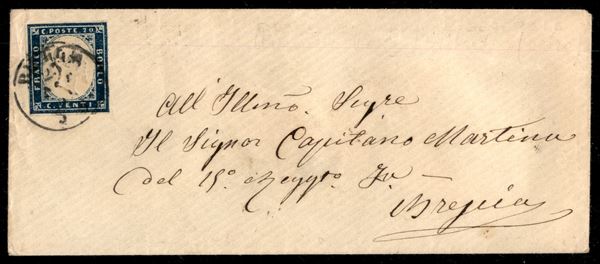 C. POSTE. 20
FRANCO
BOLLO
C. VENTI
All' Illmo. Sigre
Il Signor Capitano Martina
del 15o. Reggto. Fa
Brescia